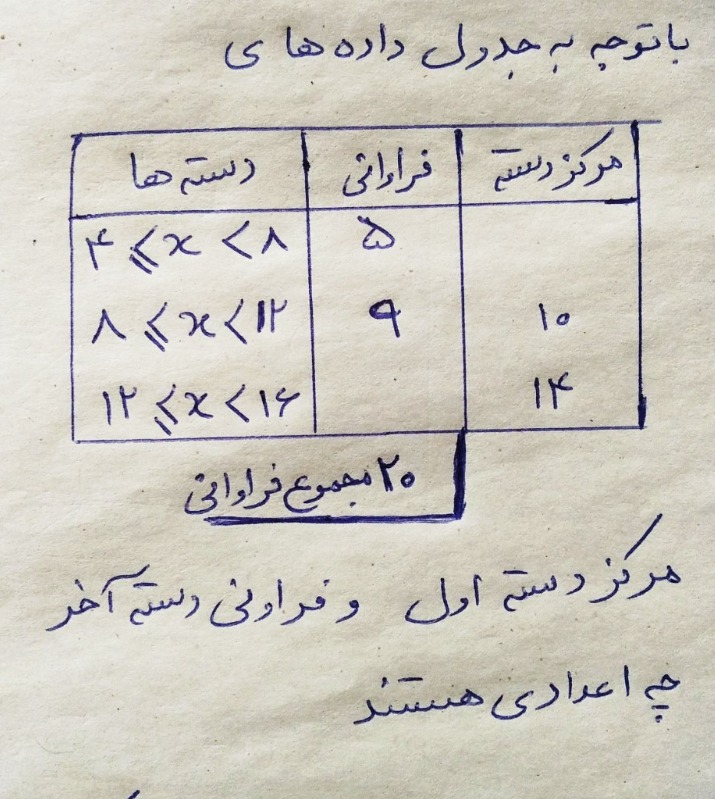 باتوجه به جدول داده های
مرکز دسته فراوانی دسته ها
۴ ⩽ x < ۸ ۵
۸ ⩽ x < ۱۲ ۹ ۱۰
۱۲ ⩽ x < ۱۶ ۱۴
۲۰ مجموع فراوانی
مرکز دسته اول و فراونی دسته آخر
چه اعدادی هستند